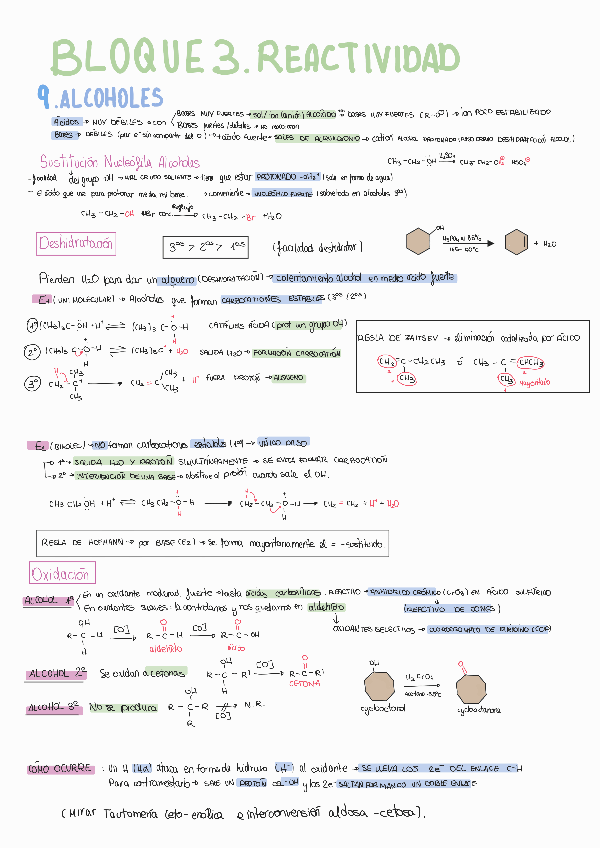 BLOQUE 3. REACTIVIDAD
9. ALCOHOLES
Ácidos → MUY DÉBILES → con
BASES MUY FUERTES → sal/ion (anión) ALCÓXIDO → BASES MUY FUERTES (R-O⁻) → ion POCO ESTABILIZADO
Bases fuertes/débiles → no reaccionan
BASES → DÉBILES (par e⁻ sin compartir del O) → + ácido fuerte → SALES DE ALQUILOXONIO → catión ALCOHOL PROTONADO
Sustitución Nucleófila Alcoholes
CH₃-CH₂-OH H₂SO₄ → CH₃-CH₂-O HSO₄⁻
- facilidad del grupo OH → MAL GRUPO SALIENTE → tiene que estar PROTONADO -OH₂⁺ (sale en forma de agua)
- El ácido que use para protonar media mi base → conveniente → NUCLEÓFILO FUERTE (sobretodo en alcoholes 3ᵒˢ)
CH₃-CH₂-OH HBr conc. Reflujo → CH₃-CH₂-Br + H₂O
Deshidratación
3ᵒˢ > 2ᵒˢ > 1ᵒˢ
(facilidad deshidratar)
OH
H₃PO₄ al 85%
165-180ºC
+ H₂O
Pierden H₂O para dar un alqueno (DESHIDRATACIÓN) → calentamiento alcohol en medio ácido fuerte
E₁ (UNIMOLECULAR) → Alcoholes que forman CARBOCATIONES ESTABLES (3ᵒˢ/2ᵒˢ)
1º (CH₃)₃C-ÖH + H⁺ ⇌ (CH₃)₃C-O-H H CATÁLISIS ÁCIDA (prot. un grupo OH)
2º (CH₃)₃C-O-H H ⇌ (CH₃)₃C⁺ + H₂O SALIDA H₂O → FORMACIÓN CARBOCATIÓN
3º H CH₃ CH₂-C⁺ CH₃ → CH₂=C CH₃ CH₃ + H⁺ FUERA PROTÓN → ALQUENO
REGLA DE ZAITSEV → eliminación catalizada por ÁCIDO
CH₂=C-CH₂CH₃ CH₃ ó CH₃-C=CHCH₃ CH₃
mayoritario
E₂ (BIMOLEC) → NO forman carbocationes estables (1º) → ÚNICO PASO
→ 1º → SALIDA H₂O Y PROTÓN SIMULTÁNEAMENTE → SE EVITA FORMAR CARBOCATIÓN
→ 2º → INTERVENCIÓN DE UNA BASE → abstrae el protón cuando sale el OH.
CH₃CH₂ÖH + H⁺ ⇌ CH₃CH₂-O-H H ⇌ CH₂-CH₂-O-H H → CH₂=CH₂ + H⁺ + H₂O
REGLA DE HOFMANN → por BASE (E2) → se forma mayoritariamente el = -sustituido
Oxidación
ALCOHOL 1º
En un oxidante moderad. fuerte → hasta ácidos carboxílicos. REACTIVO → ANHÍDRIDO CRÓMICO (CrO₃) EN ÁCIDO SULFÚRICO
(REACTIVO DE JONES)
En oxidantes suaves: lo controlamos y nos quedamos en aldehído
OXIDANTES SELECTIVOS → CLOROCROMATO DE PIRIDINIO (CCP)
OH R-C-H H [O] → O R-C-H [O] → O R-C-OH
aldehído
ácido
ALCOHOL 2º Se oxidan a cetonas
OH R-C-R' H [O] → O R-C-R'
CETONA
OH
H₂CrO₄
acetona -35ºC
O
cyclooctanol
cyclooctanona
ALCOHOL 3º No se produce
OH R-C-R R [O] → N.R.
CÓMO OCURRE: Un H (Hα) ataca en forma de hidruro (H⁻) al oxidante → SE LLEVA LOS 2e⁻ DEL ENLACE C-H
Para contrarrestarlo → SALE UN PROTÓN del -OH y los 2e⁻ SALTAN FORMANDO UN DOBLE ENLACE
(Mirar Tautomería ceto-enólica e interconversión aldosa-cetosa).